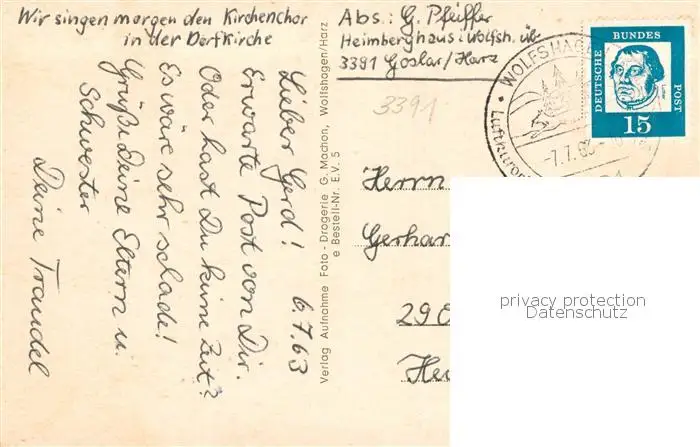 Wir singen morgen den Kirchenchor
in der Dorfkirche
Abs.: G. Pfeiffer
Heimberghaus i. Wolfsh. üb
3391 Goslar/Harz
3391
6.7.63
Lieber Gerd!
Erwarte Post von Dir.
Oder hast Du keine Zeit?
Es wäre sehr schade!
Grüße Deine Eltern u.
Schwester
Deine Traudel
Verlag Aufnahme Foto-Drogerie G. Machon, Wolfshagen/Harz
e Bestell-Nr. E.V. 5
WOLFSHAG
Luftkuror
-7.7.63
DEUTSCHE
BUNDES
POST
15
Herrn
Gerhar
290
He
privacy protection
Datenschutz